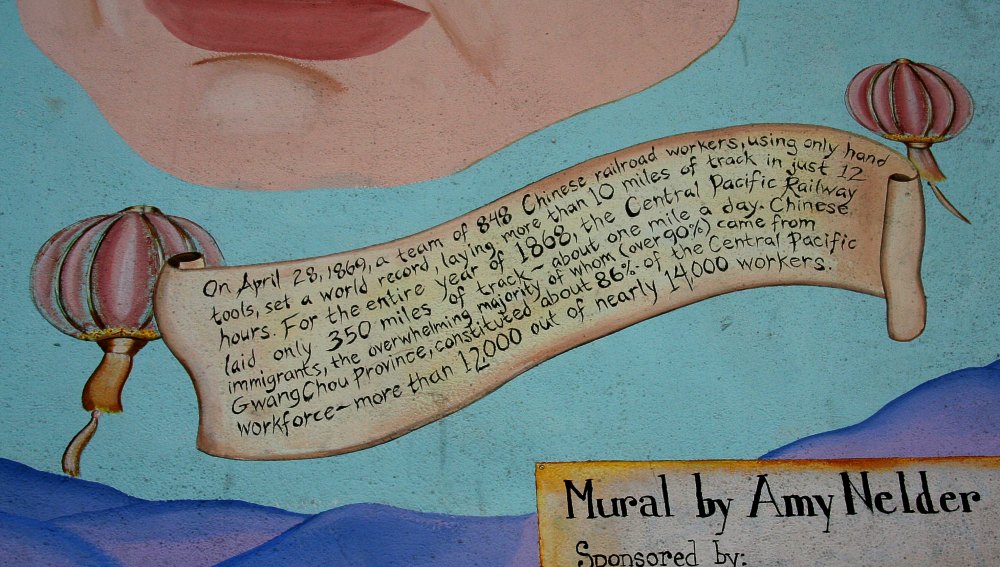 On April 28, 1869, a team of 848 Chinese railroad workers, using only hand
tools, set a world record, laying more than 10 miles of track in just 12
hours. For the entire year of 1868, the Central Pacific Railway
laid only 350 miles of track - about one mile a day. Chinese
immigrants, the overwhelming majority of whom (over 90%) came from
GwangChou Province, constituted about 86% of the Central Pacific
workforce - more than 12,000 out of nearly 14,000 workers.
Mural by Amy Nelder
Sponsored by: